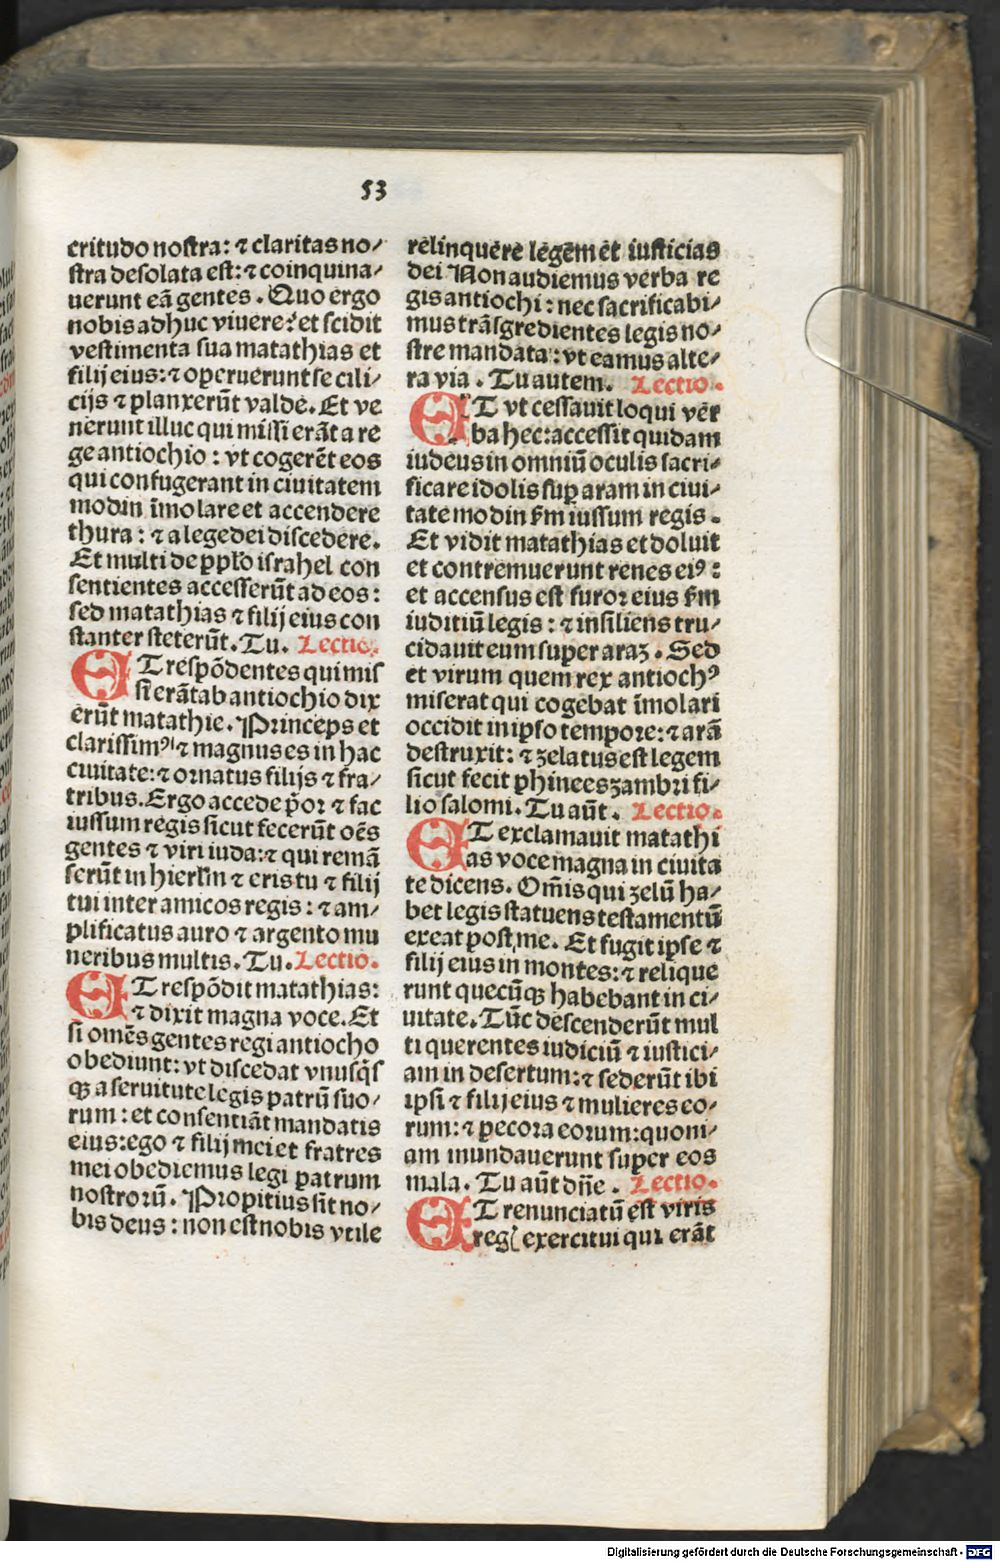 53
critudo nostra: ⁊ claritas no/
stra desolata est: ⁊ coinquina/
uerunt eā gentes. Quo ergo
nobis adhuc viuere? et scidit
vestimenta sua matathias et
filij eius: ⁊ operuerunt se cili/
cijs ⁊ planxerūt valde. Et ve
nerunt illuc qui missi erāt a re
ge antiochio: vt cogerēt eos
qui confugerant in ciuitatem
modin īmolare et accendere
thura: ⁊ a lege dei discedere.
Et multi de pplo israhel con
sentientes accesserūt ad eos:
sed matathias ⁊ filij eius con
stanter steterūt. Tu. Lectio.
ET respōdentes qui mis
si erāt ab antiochio dix
erūt matathie. Princeps et
clarissimꝰ ⁊ magnus es in hac
ciuitate: ⁊ ornatus filijs ⁊ fra/
tribus. Ergo accede p̄or ⁊ fac
iussum regis sicut fecerūt oēs
gentes ⁊ viri iuda: ⁊ qui remā
serūt in hierlm̄ ⁊ eris tu ⁊ filij
tui inter amicos regis: ⁊ am/
plificatus auro ⁊ argento mu
neribus multis. Tu. Lectio.
ET respōdit matathias:
⁊ dixit magna voce. Et
si omēs gentes regi antiocho
obediunt: vt discedat vnusq̄s
qꝫ a seruitute legis patrū suo/
rum: et consentiāt mandatis
eius: ego ⁊ filij mei et fratres
mei obediemus legi patrum
nostrorū. Propitius sit no/
bis deus: non est nobis vtile
relinquere legem et iusticias
dei Non audiemus verba re
gis antiochi: nec sacrificabi/
mus trāsgredientes legis no/
stre mandata: vt eamus alte/
ra via. Tu autem. Lectio.
ET vt cessauit loqui ver
ba hec: accessit quidam
iudeus in omniū oculis sacri/
ficare idolis suꝑ aram in ciui/
tate modin s̄m iussum regis.
Et vidit matathias et doluit
et contremuerunt renes eiꝰ:
et accensus est furor eius s̄m
iuditiū legis: ⁊ insiliens tru/
cidauit eum super araꝫ. Sed
et virum quem rex antiochꝰ
miserat qui cogebat īmolari
occidit in ipso tempore: ⁊ arā
destruxit: ⁊ zelatus est legem
sicut fecit phinees zambri fi/
lio salomi. Tu aūt. Lectio.
ET exclamauit matathi
as voce magna in ciuita
te dicens. Om̄is qui zelū ha/
bet legis statuens testamentū
exeat post me. Et fugit ipse ⁊
filij eius in montes: ⁊ relique
runt quecūqꝫ habebant in ci/
uitate. Tūc descenderūt mul
ti querentes iudiciū ⁊ iustici/
am in desertum: ⁊ sederūt ibi
ipsi ⁊ filij eius ⁊ mulieres eo/
rum: ⁊ pecora eorum: quoni/
am inundauerunt super eos
mala. Tu aūt dn̄e. Lectio.
ET renunciatū est viris
regꝭ exercitui qui erāt
Digitalisierung gefördert durch die Deutsche Forschungsgemeinschaft - DFG